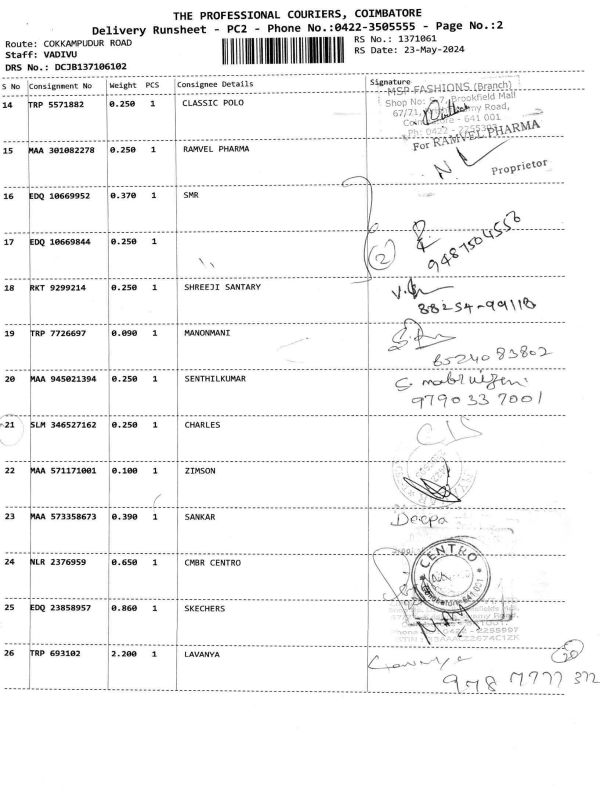 THE PROFESSIONAL COURIERS, COIMBATORE
Delivery Runsheet - PC2 - Phone No.:0422-3505555 - Page No.:2
Route: COKKAMPUDUR ROAD
RS No.: 1371061
Staff: VADIVU
RS Date: 23-May-2024
DRS No.: DCJB137106102
S No Consignment No Weight PCS Consignee Details Signature
MSP FASHIONS (Branch)
14 TRP 5571882 0.250 1 CLASSIC POLO
Shop No: Brookfield Mall
67/71, Road,
641 001
Ph: 0422 -
For RAMVEL PHARMA
15 MAA 301082278 0.250 1 RAMVEL PHARMA
Proprietor
16 EDQ 10669952 0.370 1 SMR
17 EDQ 10669844 0.250 1
2
9487504556
18 RKT 9299214 0.250 1 SHREEJI SANTARY
88254-99118
19 TRP 7726697 0.090 1 MANONMANI
8524083802
20 MAA 945021394 0.250 1 SENTHILKUMAR
9790337001
21 SLM 346527162 0.250 1 CHARLES
22 MAA 571171001 0.100 1 ZIMSON
23 MAA 573358673 0.390 1 SANKAR
Deepa
24 NLR 2376959 0.650 1 CMBR CENTRO
CENTRO
Coimbatore-641 001
25 EDQ 23858957 0.860 1 SKECHERS
26 TRP 693102 2.200 1 LAVANYA
20
978 7777 372